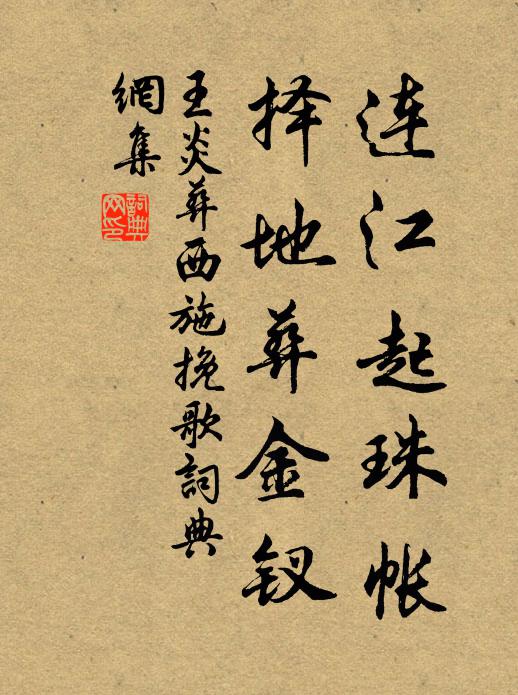 连江起珠帐
择地葬金钗
王炎葬西施挽歌詞典
網集
詞典
网印